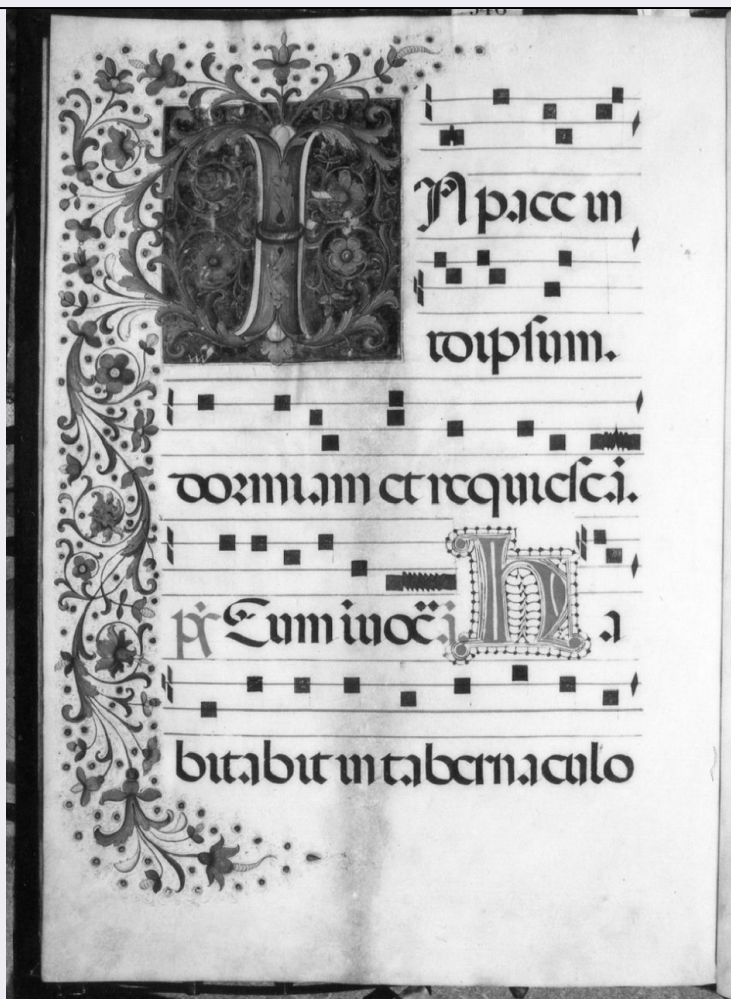 IN pace in
idipsum.
dormiam et requiesca.
ps Cum inuoca Ha
bitabit in tabernaculo